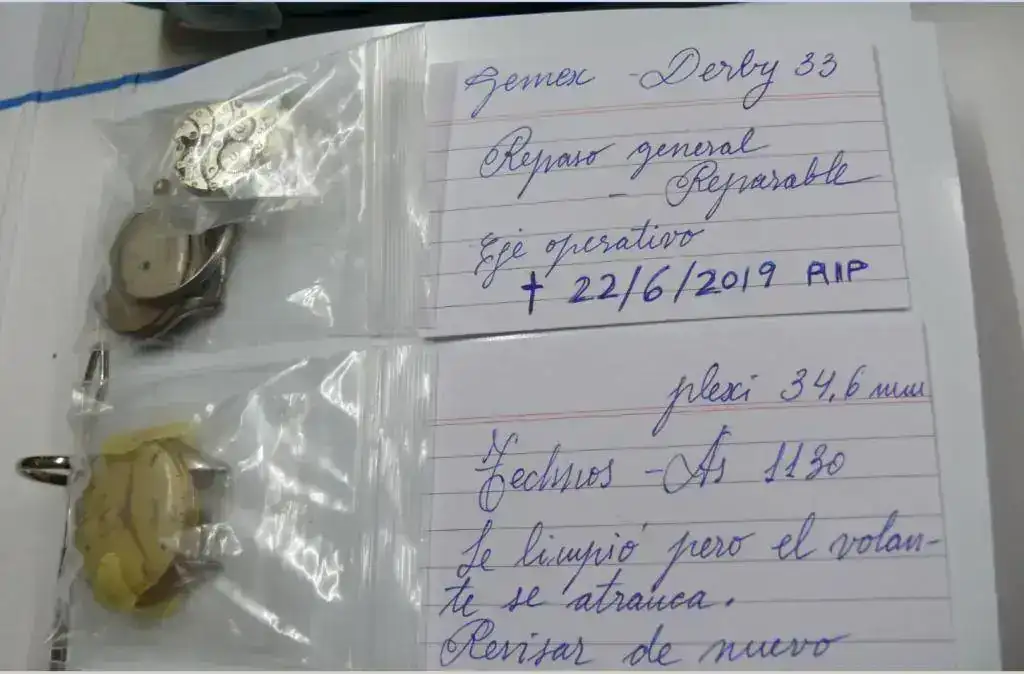 Gemex - Derby 33
Repaso general
- Reparable
Eje operativo
† 22/6/2019 RIP
plexi 34,6 mm
Technos - As 1130
Se limpió pero el volan-
te se atranca.
Revisar de nuevo